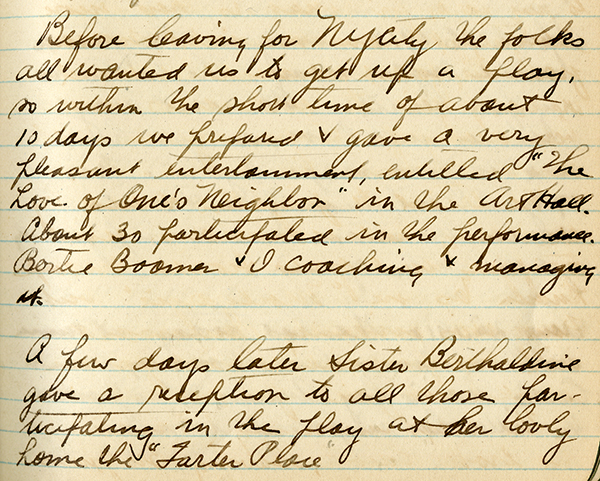 Before leaving for NYCity the folks
all wanted us to get up a play,
so within the short time of about
10 days we prepared & gave a very
pleasant entertainment, entitled "The
Love of One's Neighbor" in the Art Hall.
About 30 participated in the performance.
Bertie Boomer & I coaching & managing
it.
A few days later Sister Berthaldine
gave a reception to all those par-
ticipating in the play at her lovly
home the "Farter Place"